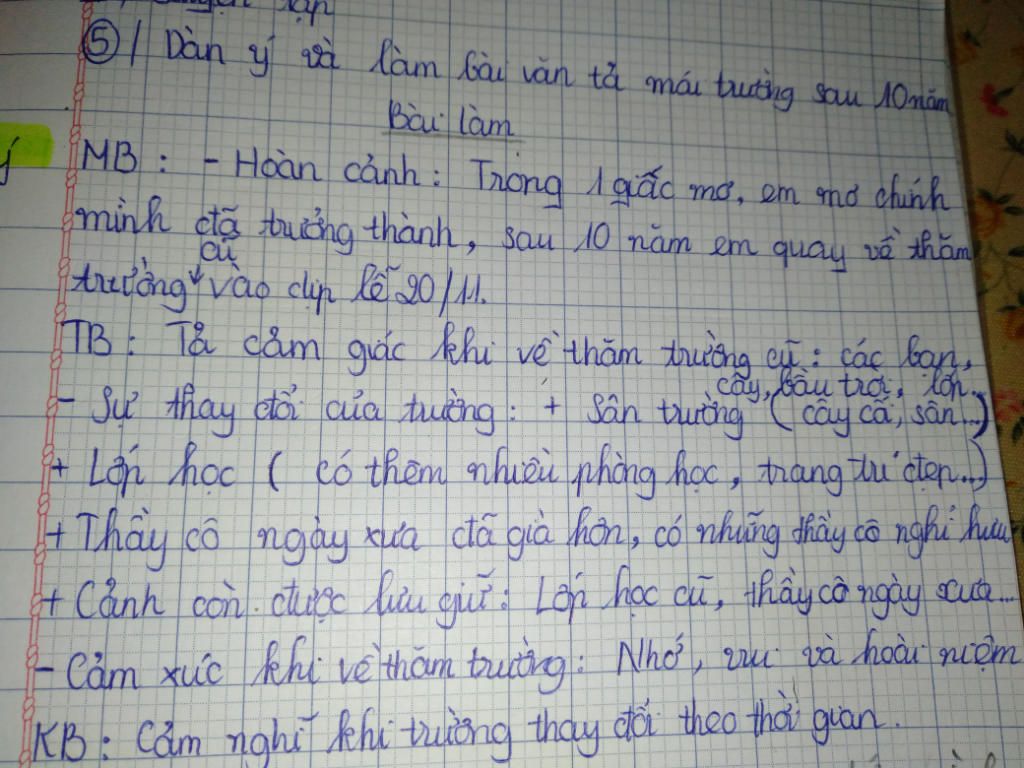 ⑤/ Dàn ý và làm bài văn tả mái trường sau 10 năm
Bài làm
MB : - Hoàn cảnh : Trong 1 giấc mơ, em mơ chính
mình đã trưởng thành, sau 10 năm em quay về thăm
trường cũ vào dịp lễ 20/11.
TB : Tả cảm giác khi về thăm trường cũ : các bạn,
cây, bầu trời, lớp...
- Sự thay đổi của trường : + Sân trường (cây cối, sân...)
+ Lớp học ( có thêm nhiều phòng học, trang trí đẹp...)
+ Thầy cô ngày xưa đã già hơn, có những thầy cô nghỉ hưu
+ Cảnh còn được lưu giữ : Lớp học cũ, thầy cô ngày xưa...
- Cảm xúc khi về thăm trường : Nhớ, vui và hoài niệm
KB : Cảm nghĩ khi trường thay đổi theo thời gian.